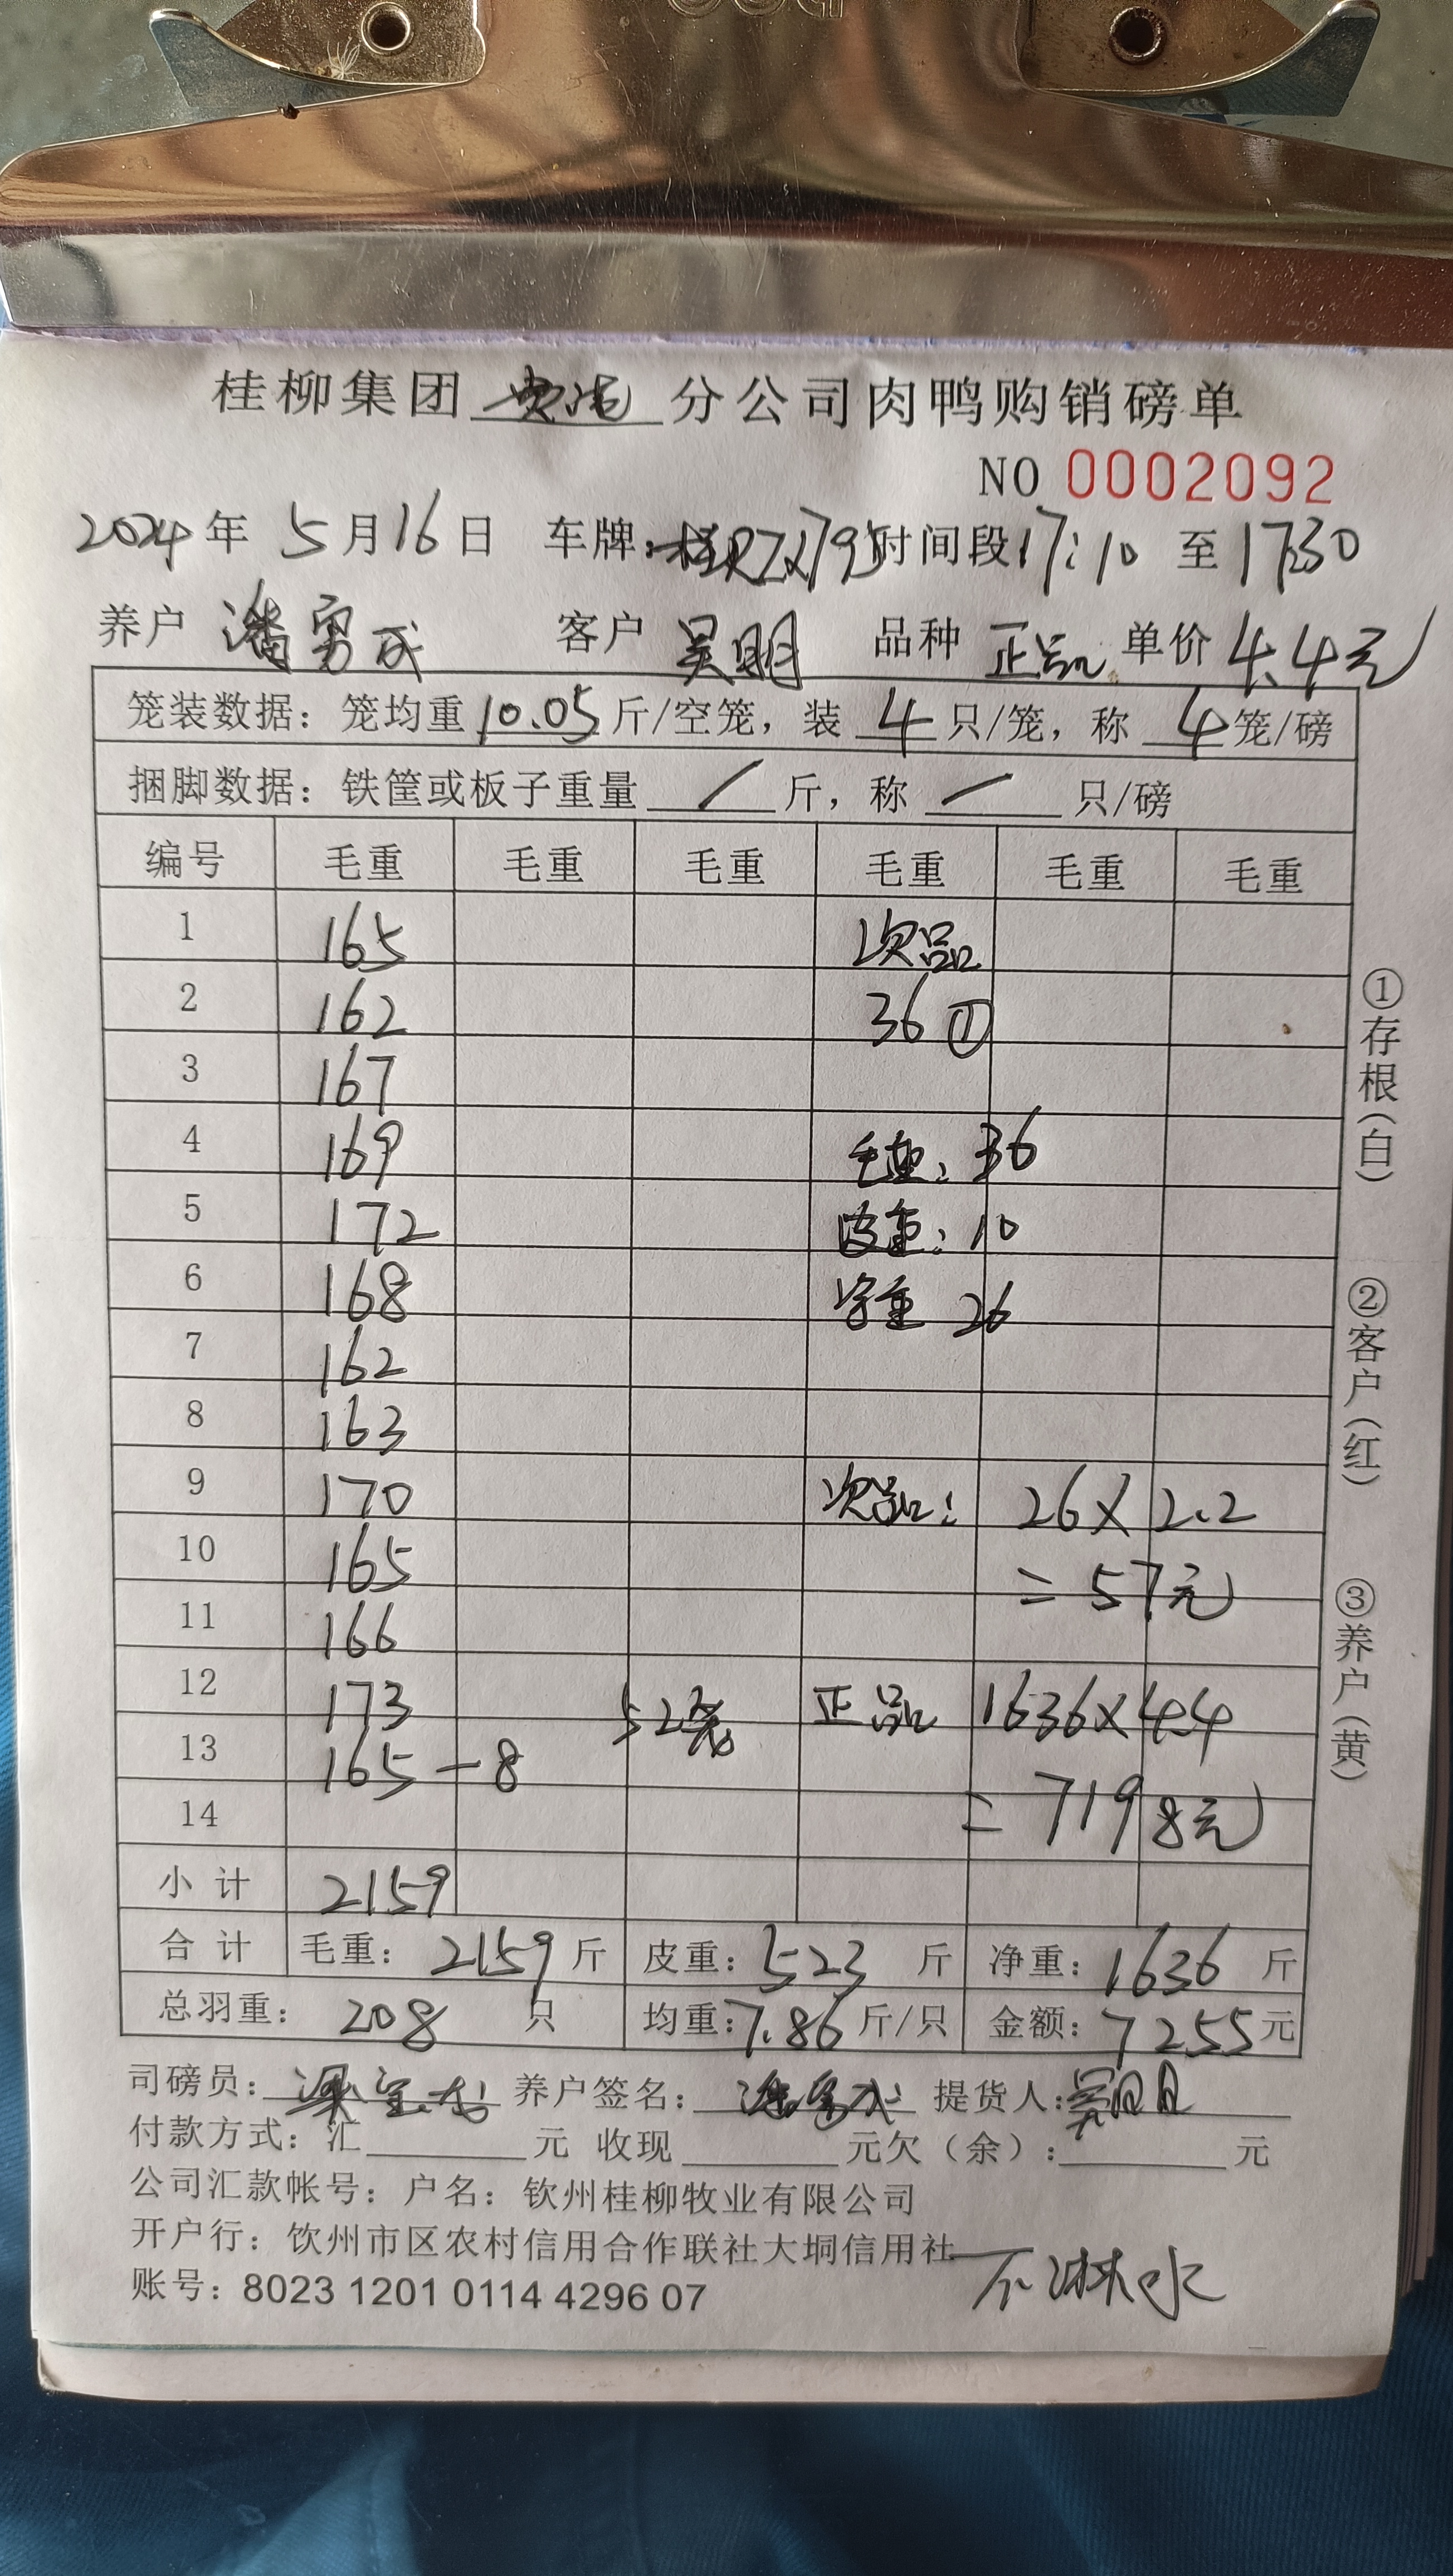 桂柳集团 分公司肉鸭购销磅单
NO 0002092
2024年 5月16日 车牌: 时间段17:10 至 17:30
养户 潘勇成 客户 吴明 品种 正品 单价 4.4元
笼装数据：笼均重 10.05 斤/空笼，装 4 只/笼，称 4 笼/磅
捆脚数据：铁筐或板子重量 / 斤，称 / 只/磅
编号 毛重 毛重 毛重 毛重 毛重 毛重
1 165 次品
2 162 36 ①
3 167
4 169 毛重: 36
5 172 皮重: 10
6 168 净重 26
7 162
8 163
9 170 次品: 26×2.2
10 165 =57元
11 166
12 173 52笼 正品 1636×4.4
13 165-8
14 =7198元
小计 2159
合计 毛重：2159斤 皮重：523 斤 净重：1636 斤
总羽重：208 只 均重：7.86斤/只 金额：7255元
司磅员： 养户签名：潘勇成 提货人：吴明
付款方式：汇 元 收现 元欠（余）： 元
公司汇款帐号：户名：钦州桂柳牧业有限公司
开户行：饮州市区农村信用合作联社大垌信用社
账号：8023 1201 0114 4296 07
不淋水
①存根(白)
②客户(红)
③养户(黄)